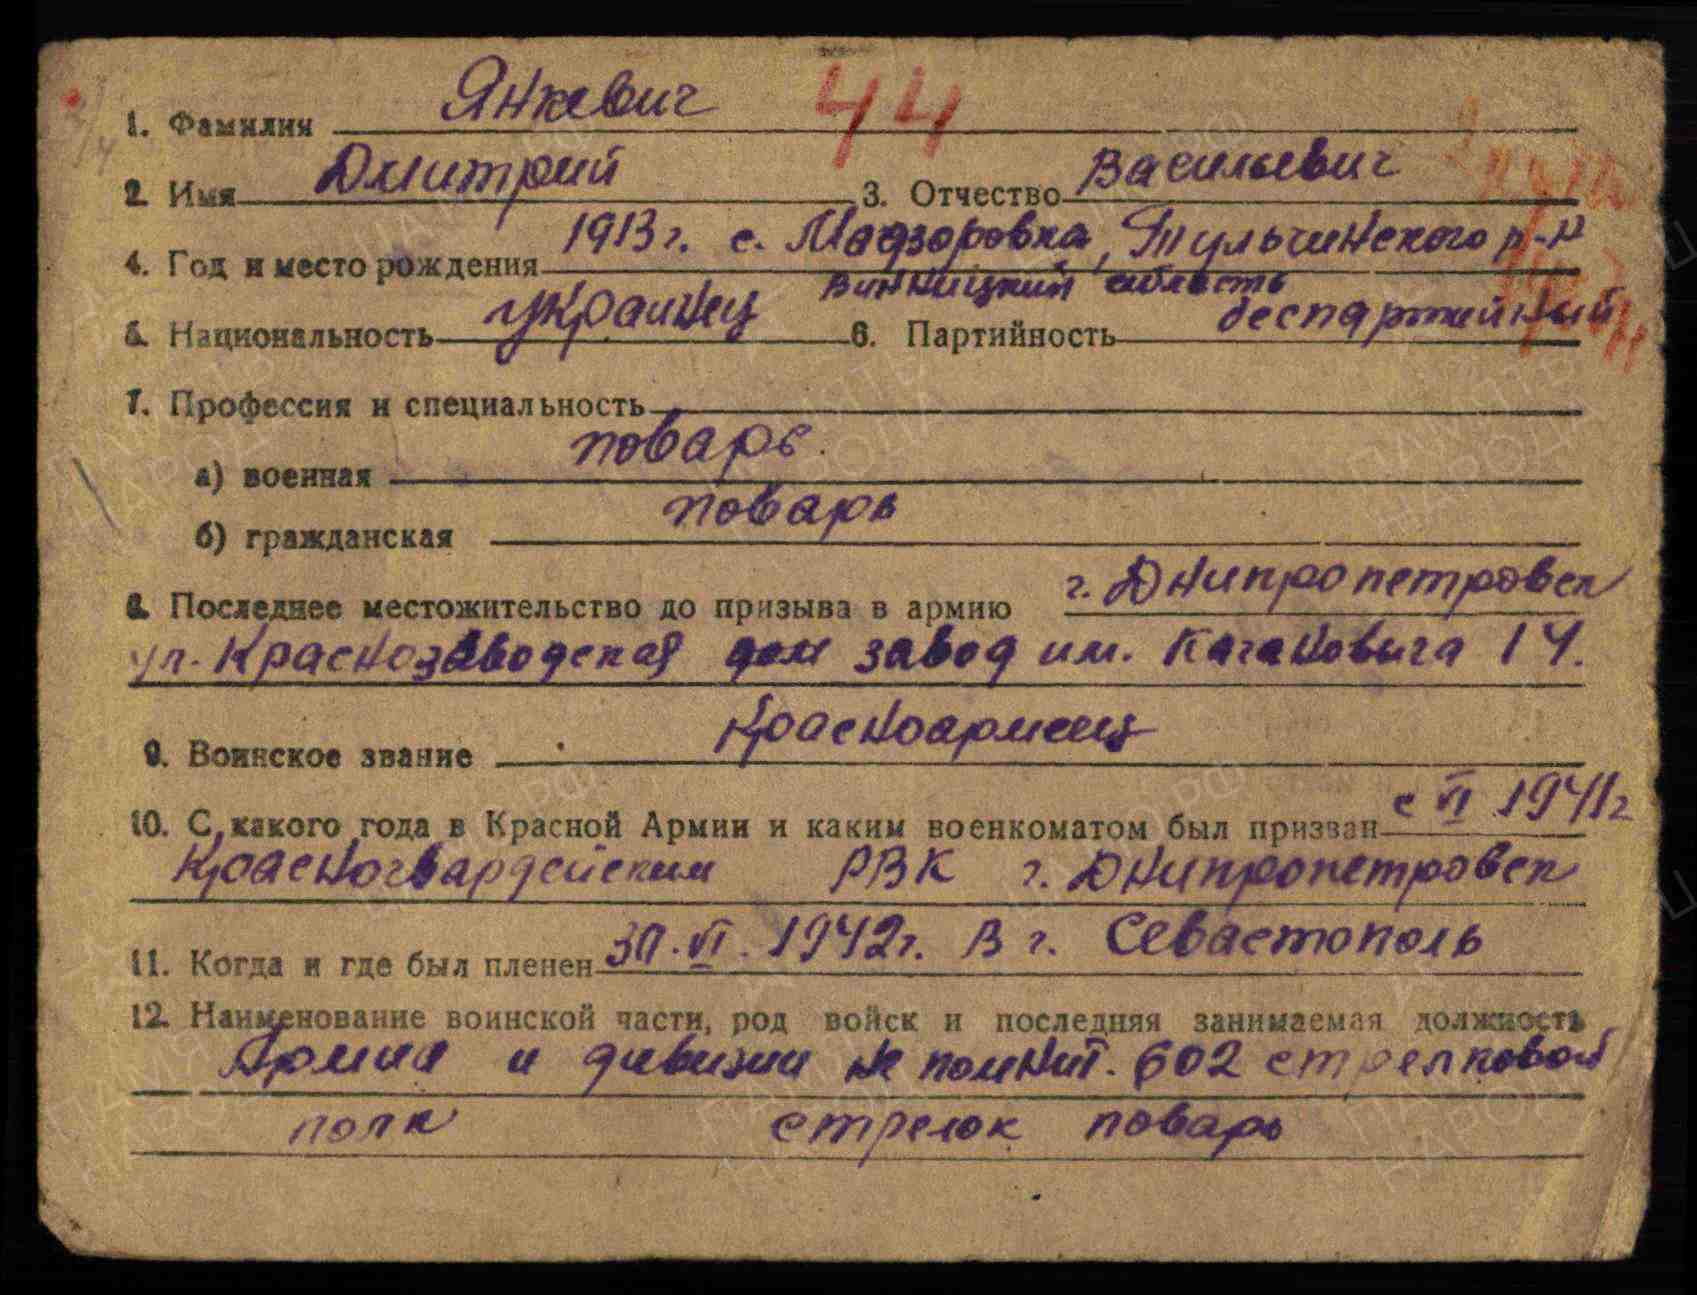 Янкевич 44
1. Фамилия
Дмитрий Васильевич
2. Имя 3. Отчество
1913 г. с. Мадзоровка, Тульчинского р-н
4. Год и место рождения
Винницкий область
украинец беспартийный
5. Национальность 6. Партийность
7. Профессия и специальность
поварь.
а) военная
поварь
б) гражданская
8. Последнее местожительство до призыва в армию г. Днипропетровск
ул. Краснозаводская дом завод им. Кагановыча 14.
Красноармеец
9. Воинское звание
10. С какого года в Красной Армии и каким военкоматом был призван с VI 1941 г
Красногвардейским РВК г. Днипропетровск
11. Когда и где был пленен 30.VI.1942 г. В г. Севастополь
12. Наименование воинской части, род войск и последняя занимаемая должность
Армия и дивизии не помнит. 602 стрелковой
полк стрелок поварь